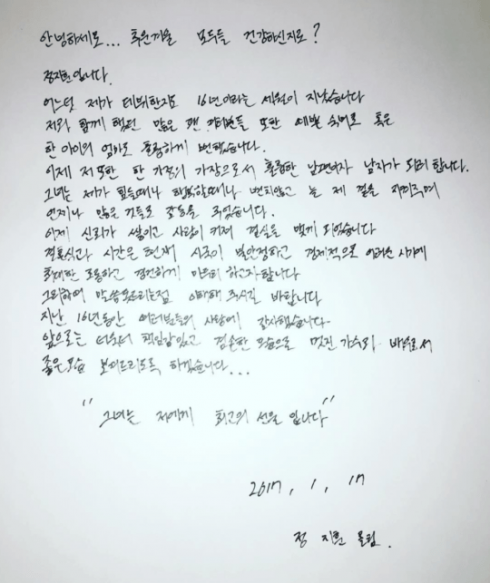 안녕하세요... 추운겨울 모두들 건강하신지요?
정지훈입니다.
어느덧 제가 데뷔한지도 16년이라는 세월이 지났습니다
저와 함께 했던 많은 팬 여러분들 또한 예쁜 숙녀로 혹은
한 아이의 엄마로 훌륭하게 변했습니다.
이제 저 또한 한 가정의 가장으로서 훌륭한 남편이자 남자가 되려 합니다.
그녀는 제가 힘들때나 행복할때나 변치않고 늘 제 곁을 지켜주며
언제나 많은 것들로 감동을 주었습니다.
이제 신뢰가 쌓이고 사랑이 커져 결실을 맺게 되었습니다
결혼식과 시간은 현재 시국이 불안정하고 경제적으로 어려운 시기에
최대한 조용하고 경건하게 마무리 하고자합니다
그리하여 말씀못드리는점 이해해 주시길 바랍니다
지난 16년동안 여러분들의 사랑에 감사했습니다
앞으로는 더욱더 책임감있고 겸손한 모습으로 멋진 가수와 배우로서
좋은모습 보여드리도록 하겠습니다...
"그녀는 저에게 최고의 선물 입니다"
2017. 1. 17
정 지훈 올림.